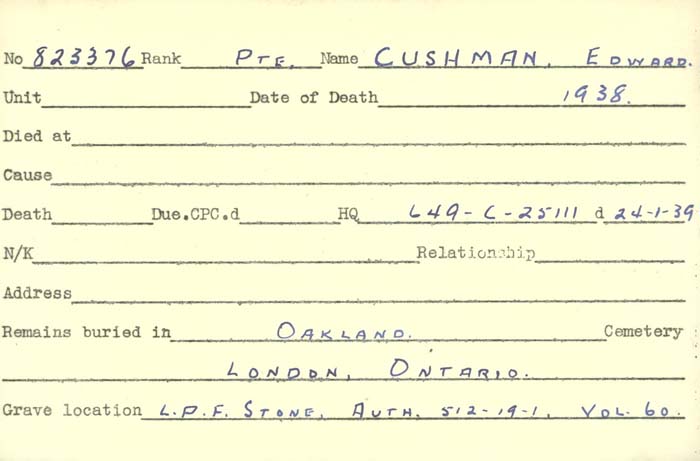 No 823376 Rank PTE. Name CUSHMAN, EDWARD.
Unit Date of Death 1938.
Died at
Cause
Death Due.CPC.d HQ 649-C-25111 d 24-1-39
N/K Relationship
Address
Remains buried in OAKLAND. Cemetery
LONDON, ONTARIO.
Grave location L.P.F. STONE, AUTH. 512-19-1, VOL. 60.